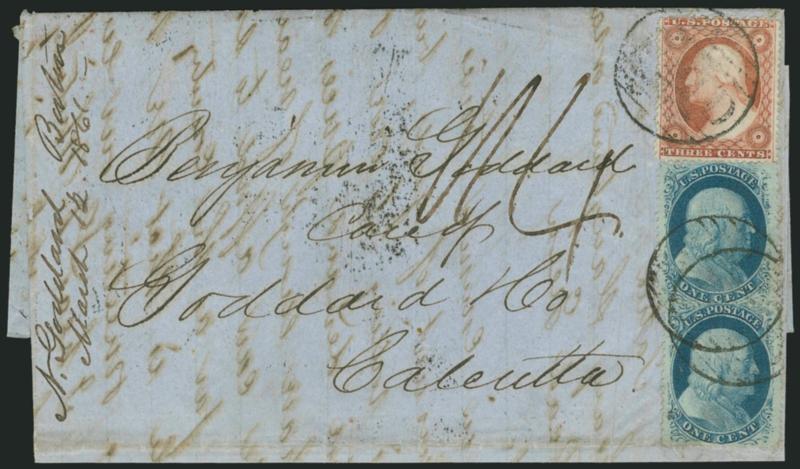 N. Goddard Boston
March 12 1861.
Benjamin Goddard
Care of
Goddard & Co
Calcutta
U.S. POSTAGE
THREE CENTS
U.S. POSTAGE
ONE CENT
U.S. POSTAGE
ONE CENT